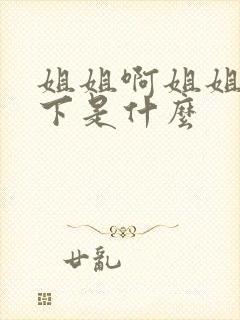 姐姐啊姐姐
下是什麼
廿亂